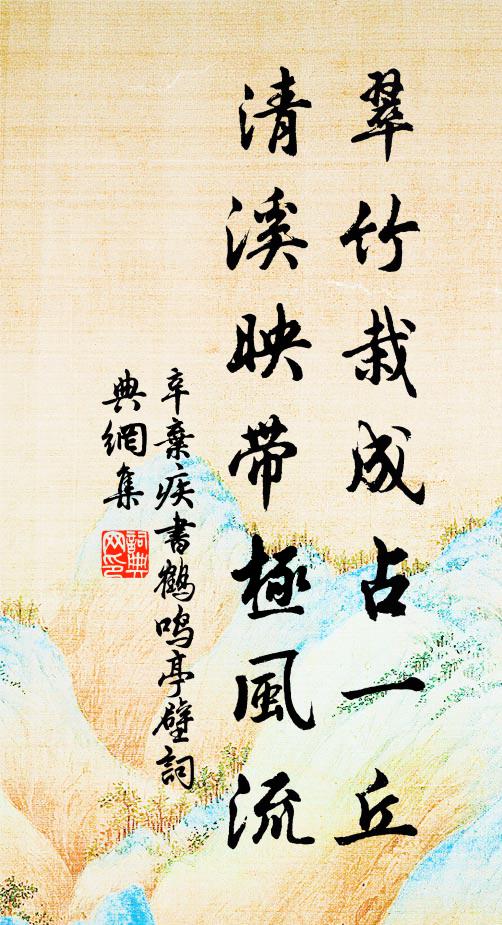 翠竹栽成占一丘
清溪映帶極風流
辛棄疾書鶴鳴亭壁詞
典網集
詞典
网印